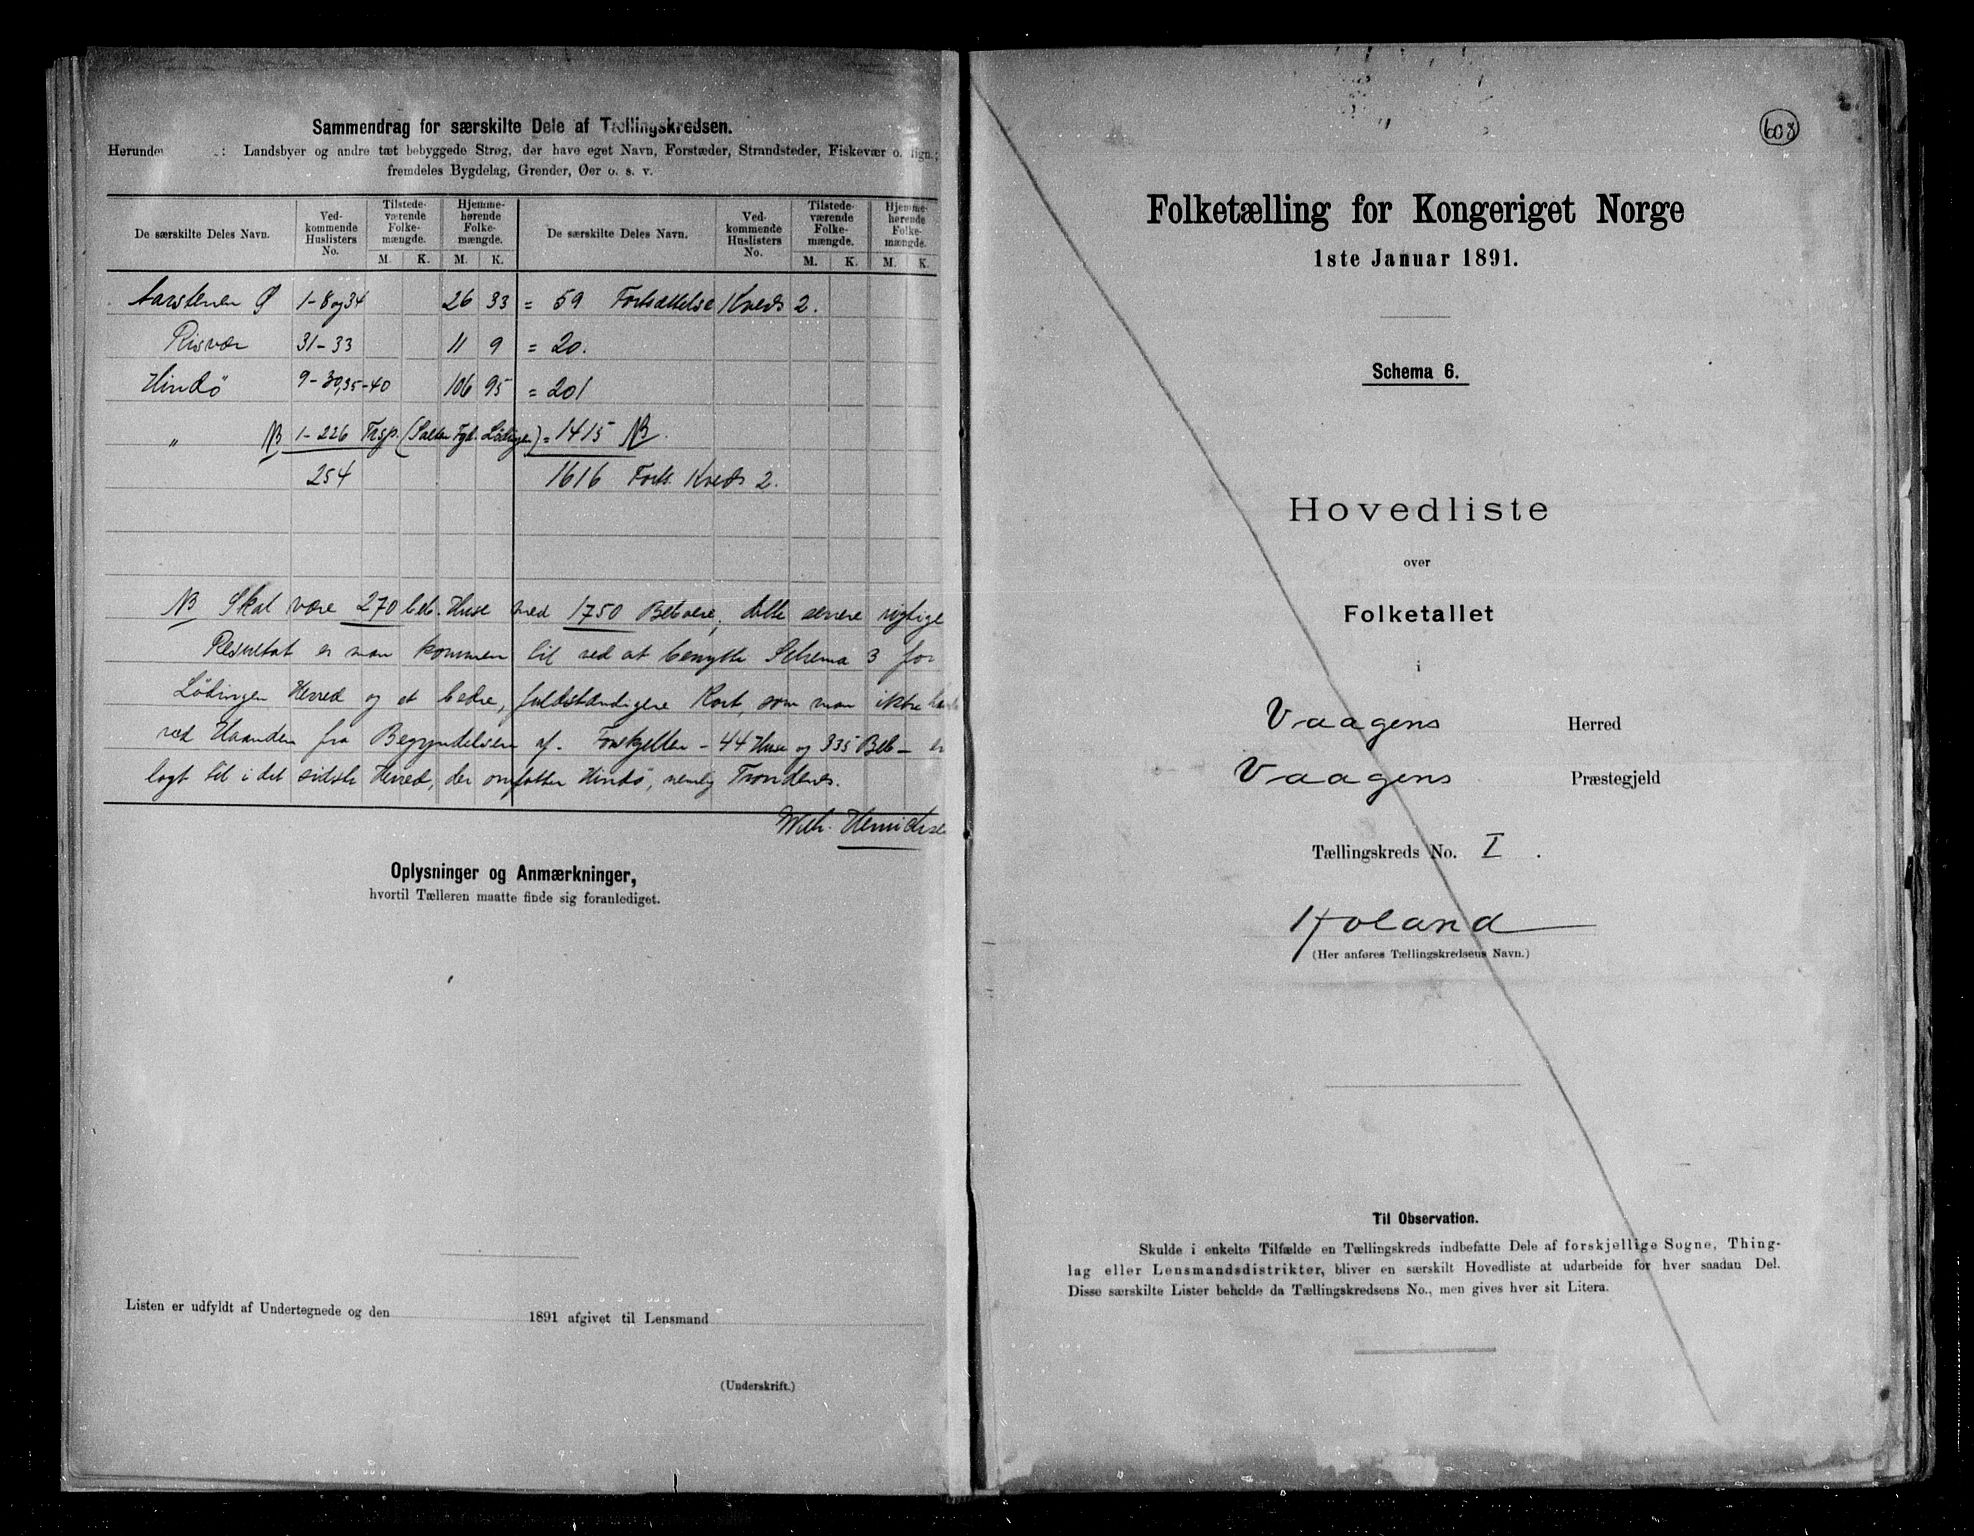 Sammendrag for særskilte Dele af Tællingskredsen.
Herunder : Landsbyer og andre tæt bebyggede Strøg, der have eget Navn, Forstæder, Strandsteder, Fiskevær o. lign.;
fremdeles Bygdelag, Grender, Øer o. s. v.
De særskilte Deles Navn. Ved-kommende Huslisters No. Tilstede-værende Folke-mængde. Hjemme-hørende Folke-mængde. De særskilte Deles Navn. Ved-kommende Huslisters No. Tilstede-værende Folke-mængde. Hjemme-hørende Folke-mængde.
M. K. M. K. M. K. M. K.
Aarstenen Ø 1-8 og 34 26 33 = 59 Fortsættelse Kreds 2.
Risvær 31-33 11 9 = 20.
Hindø 9-30,35-40 106 95 = 201
" NB 1-226 Trsp. (Salten Fgd. Lødingen) = 1415 NB.
254 1616 Forts. Kreds 2.
NB Skal være 270 beb. Huse med 1750 Beboere; dette senere rigtige
Resultat er man kommen til ved at benytte Schema 3 for
Lødingen Herred og et bedre, fuldstændigere Kart, som man ikke havde
ved Haanden fra Begyndelsen af. Forskjellen - 44 Huse og 335 Beb - er
lagt til i det sidste Herred, der omfatter Hindø, nemlig Trondenes.
Wilh. Henrichsen
Oplysninger og Anmærkninger,
hvortil Tælleren maatte finde sig foranlediget.
Listen er udfyldt af Undertegnede og den 1891 afgivet til Lensmand
(Underskrift.)
603
Folketælling for Kongeriget Norge
1ste Januar 1891.
Schema 6.
Hovedliste
over
Folketallet
i
Vaagens Herred
Vaagens Præstegjeld
Tællingskreds No. I.
Holand
(Her anføres Tællingskredsens Navn.)
Til Observation.
Skulde i enkelte Tilfælde en Tællingskreds indbefatte Dele af forskjellige Sogne, Thing-
lag eller Lensmandsdistrikter, bliver en særskilt Hovedliste at udarbeide for hver saadan Del.
Disse særskilte Lister beholde da Tællingskredsens No., men gives hver sit Litera.